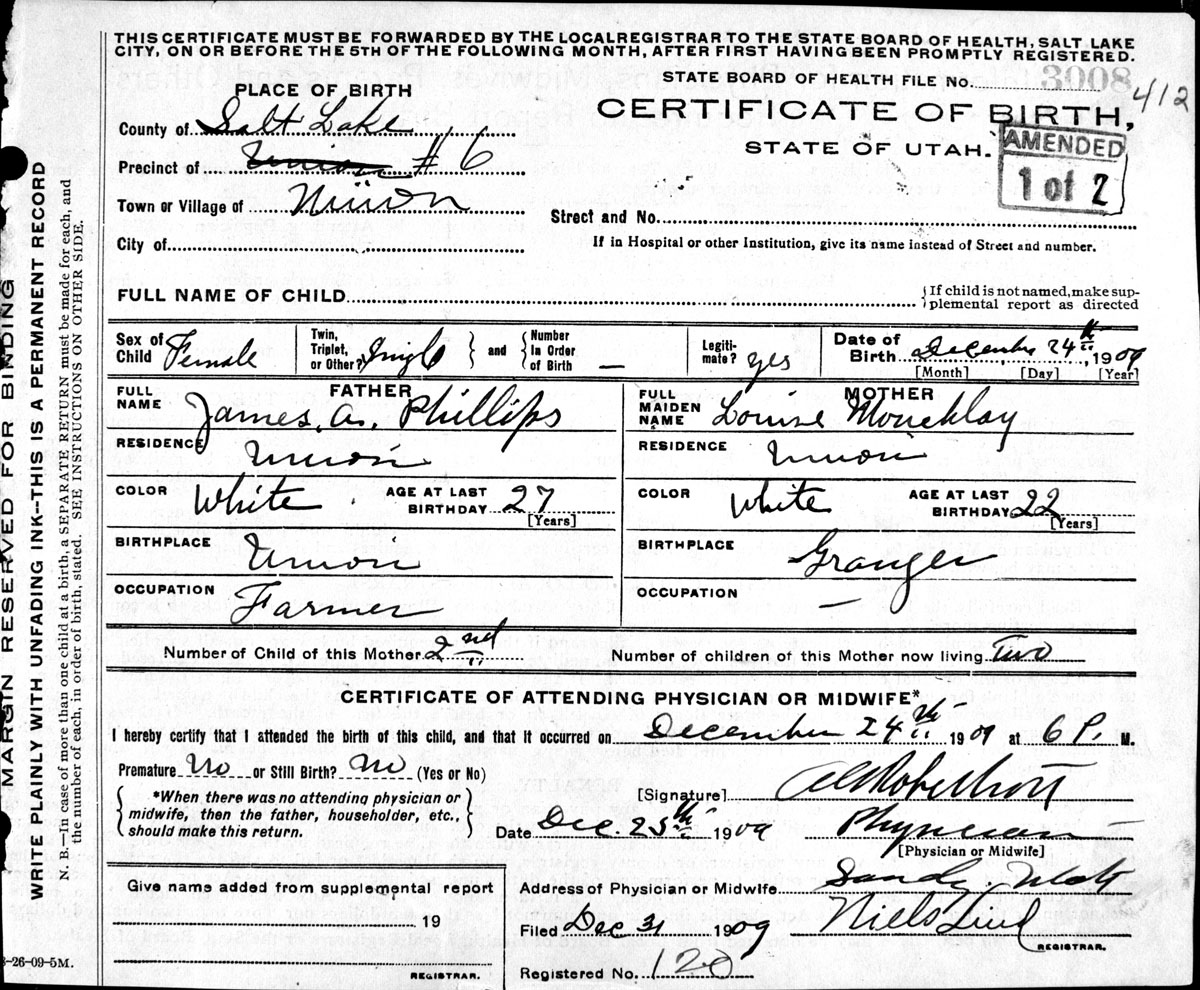 THIS CERTIFICATE MUST BE FORWARDED BY THE LOCALREGISTRAR TO THE STATE BOARD OF HEALTH, SALT LAKE
CITY, ON OR BEFORE THE 5TH OF THE FOLLOWING MONTH, AFTER FIRST HAVING BEEN PROMPTLY REGISTERED.
STATE BOARD OF HEALTH FILE No. 3008
412
PLACE OF BIRTH
CERTIFICATE OF BIRTH,
STATE OF UTAH.
AMENDED
1 of 2
County of Salt Lake
Precinct of Union #6
Town or Village of Union
Street and No.
City of
If in Hospital or other Institution, give its name instead of Street and number.
FULL NAME OF CHILD
{If child is not named, make sup-
plemental report as directed
Sex of Child Female
Twin, Triplet, or Other? Single } and { Number in Order of Birth —
Legiti-mate? yes
Date of Birth December 24th, 1909
[Month] [Day] [Year]
FATHER
FULL NAME James. A. Phillips
MOTHER
FULL MAIDEN NAME Louise
RESIDENCE Union
RESIDENCE Union
COLOR White
AGE AT LAST BIRTHDAY 27
[Years]
COLOR White
AGE AT LAST BIRTHDAY 22
[Years]
BIRTHPLACE Union
BIRTHPLACE Granger
OCCUPATION Farmer
OCCUPATION —
Number of Child of this Mother 2nd
Number of children of this Mother now living Two
CERTIFICATE OF ATTENDING PHYSICIAN OR MIDWIFE*
I hereby certify that I attended the birth of this child, and that it occurred on December 24th 1909 at 6 P. M.
Premature No or Still Birth? No (Yes or No)
*When there was no attending physician or
midwife, then the father, householder, etc.,
should make this return.
[Signature]
Date Dec. 25th 1909
Physician
[Physician or Midwife]
Give name added from supplemental report
19
REGISTRAR.
Address of Physician or Midwife Sandy, Utah
Filed Dec 31 1909
Niels Lind
REGISTRAR.
Registered No. 120
-26-09-5M.
MARGIN RESERVED FOR BINDING
WRITE PLAINLY WITH UNFADING INK--THIS IS A PERMANENT RECORD
N. B.—In case of more than one child at a birth, a SEPARATE RETURN must be made for each, and
the number of each, in order of birth, stated. SEE INSTRUCTIONS ON OTHER SIDE.